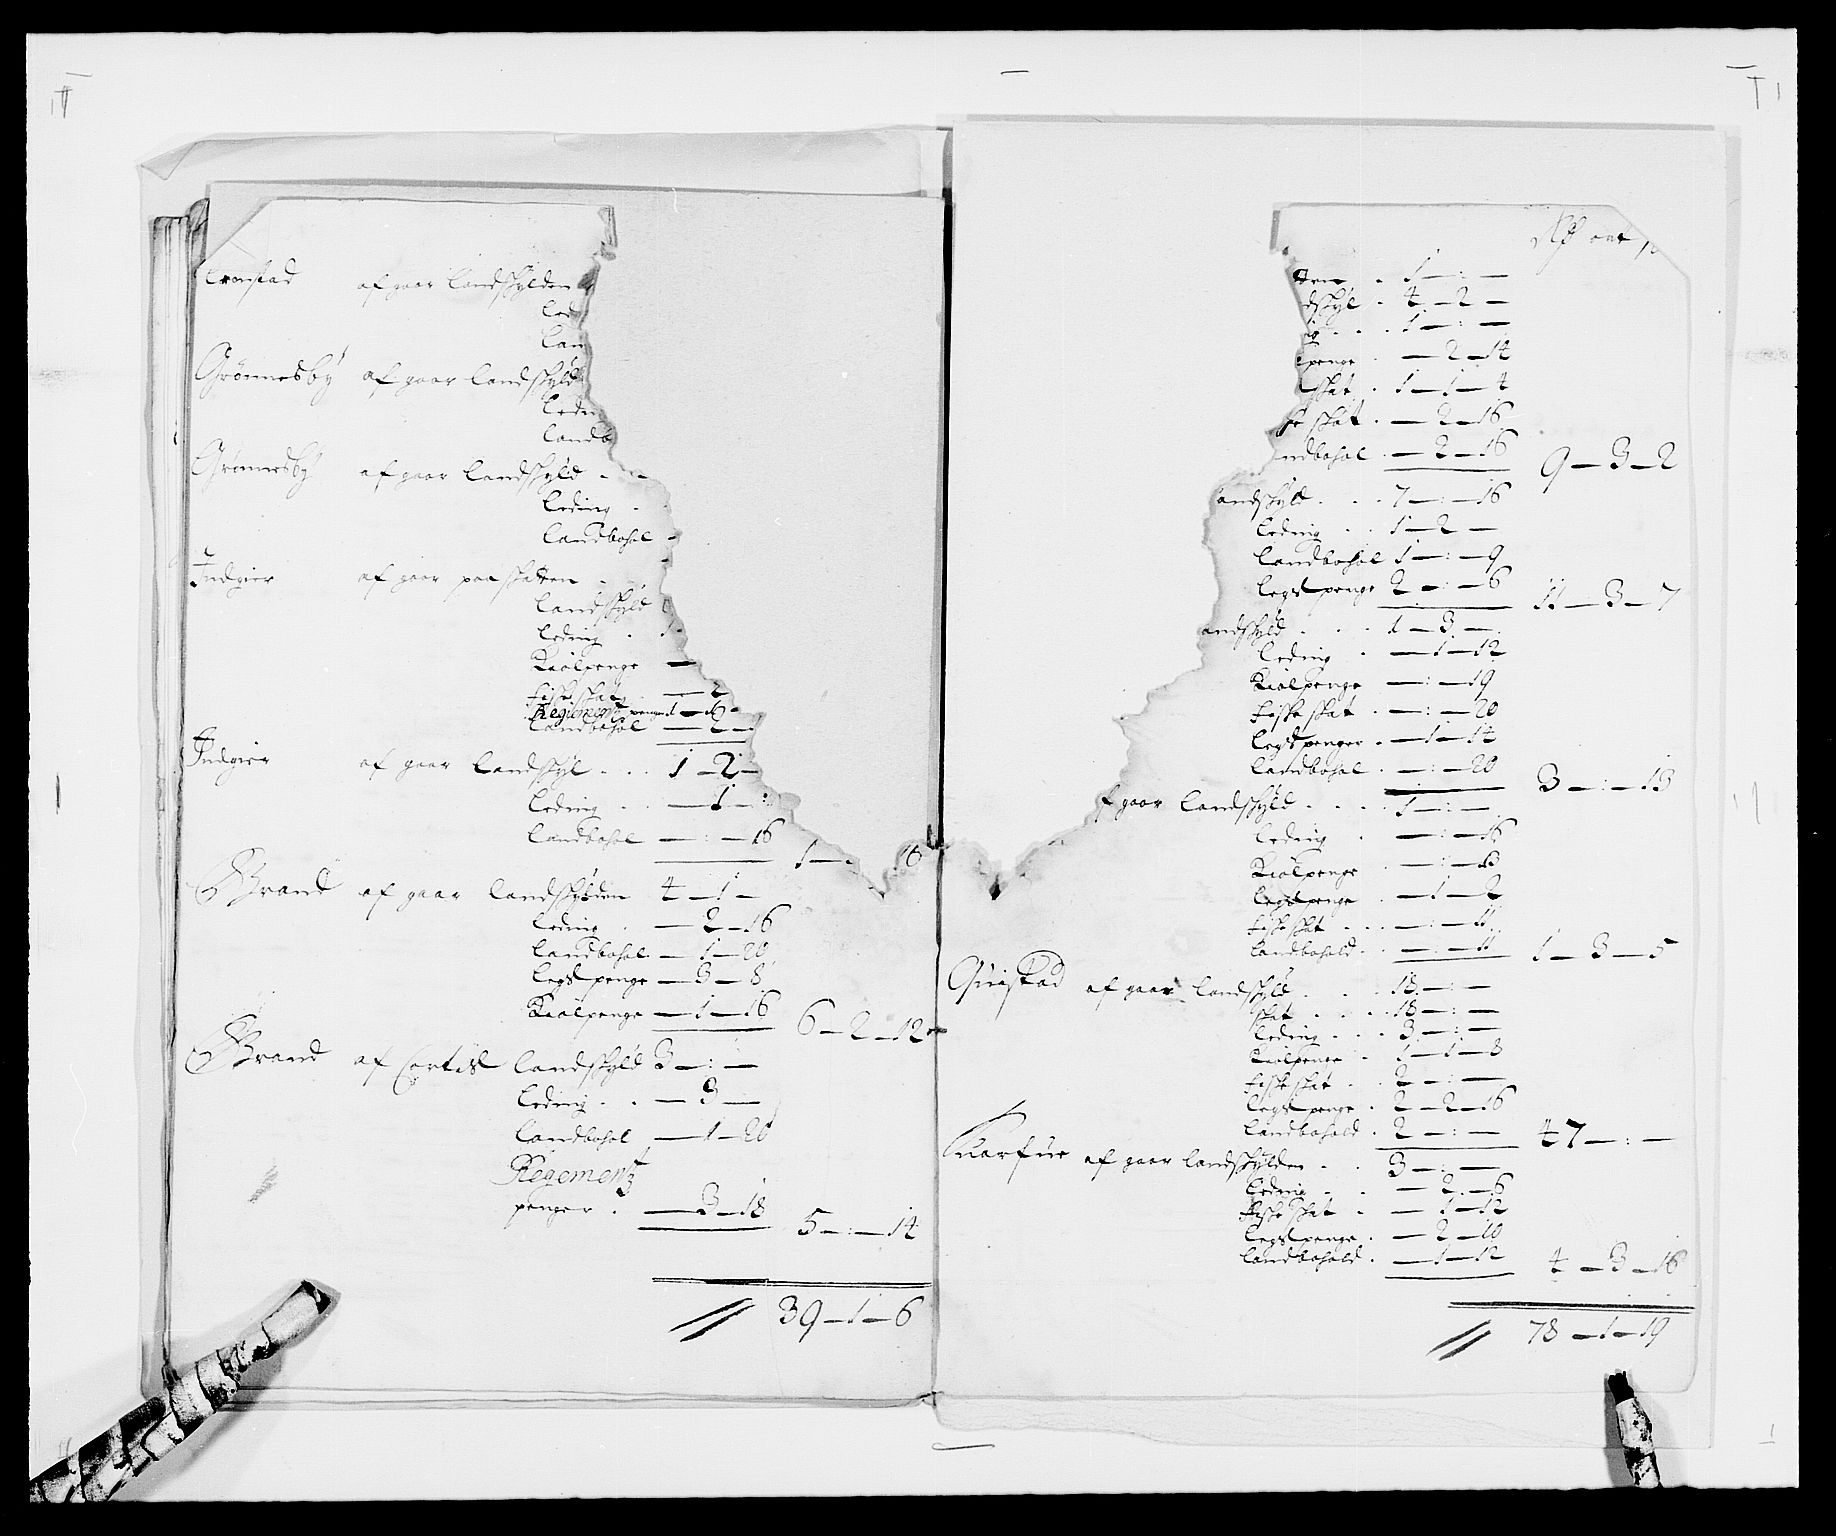 af gaar landskylden
led
lan
Grønnesby af gaar landskyld
ledn
landb
Grønnesby af gaar landskyld - -
leding -
landbohol -
Indgier af gaar paa skatten -
landskyld
leding . 1-
Kiølpenge —
fiske skat . — 2
Regiementz penge 1 — 6 -
landbohol — 2 -
Indgier af gaar landskyl . . . 1 — 2 —
leding . . — 1 — :
landbohol — : — 16
1 — 18
Brand af gaar landskylden 4 — 1 —
leding . — 2 — 16
landbohol . — 1 — 20
legdpenge — 3 — 8
Kiølpenge — 1 — 16 6 — 2 — 12
Brand af landskyld 3 — : —
leding . . — 3 —
landbohol — 1 — 20
Regementz
penger . — 3 — 18 5 — : — 14
39 — 1 — 6
ort
tten . 1 — : —
dskyl . 4 — 2 —
ig . . . 1 — : —
penge . — 2 — 14
skat . 1 — 1 — 4
ke skat . — 2 — 16
ndbohol . — 2 — 16 9 — 3 — 2
andskyld . . . 7 — : — 16
leding . . 1 — 2 —
landbohol 1 — : — 9
legdpenge 2 — : — 6 11 — 3 — 7
andskyld . . . 1 — 3 —
leding . — 1 — 12
Kiølpenge — : — 19
fiske skat . — : — 20
legdpenger . — 1 — 14
landbohol . — : — 20 3 — : — 13
f gaar landskyld . . . . 1 — : —
leding . — : — 16
Kiølpenge . — : — 13
legdpenge . — 1 — 2
fiske skat . . — : — 11
landbohold . . — : — 11 1 — 3 — 5
Quistad af gaar landskyld . . . 18 — : —
skat . . . . 18 — : —
leding . . . 3 — : —
Kiølpenge . 1 — 1 — 8
fiske skat . . 2 — : —
legdpenge . 2 — 2 — 16
landbohold . 2 — : — 47 — : —
af gaar landskylden . . 3 — : —
leding . . — 2 — 6
fiske skat . — 1 — 12
legdpenge . — 2 — 10
landbohold . — 1 — 12 4 — 3 — 16
78 — 1 — 19